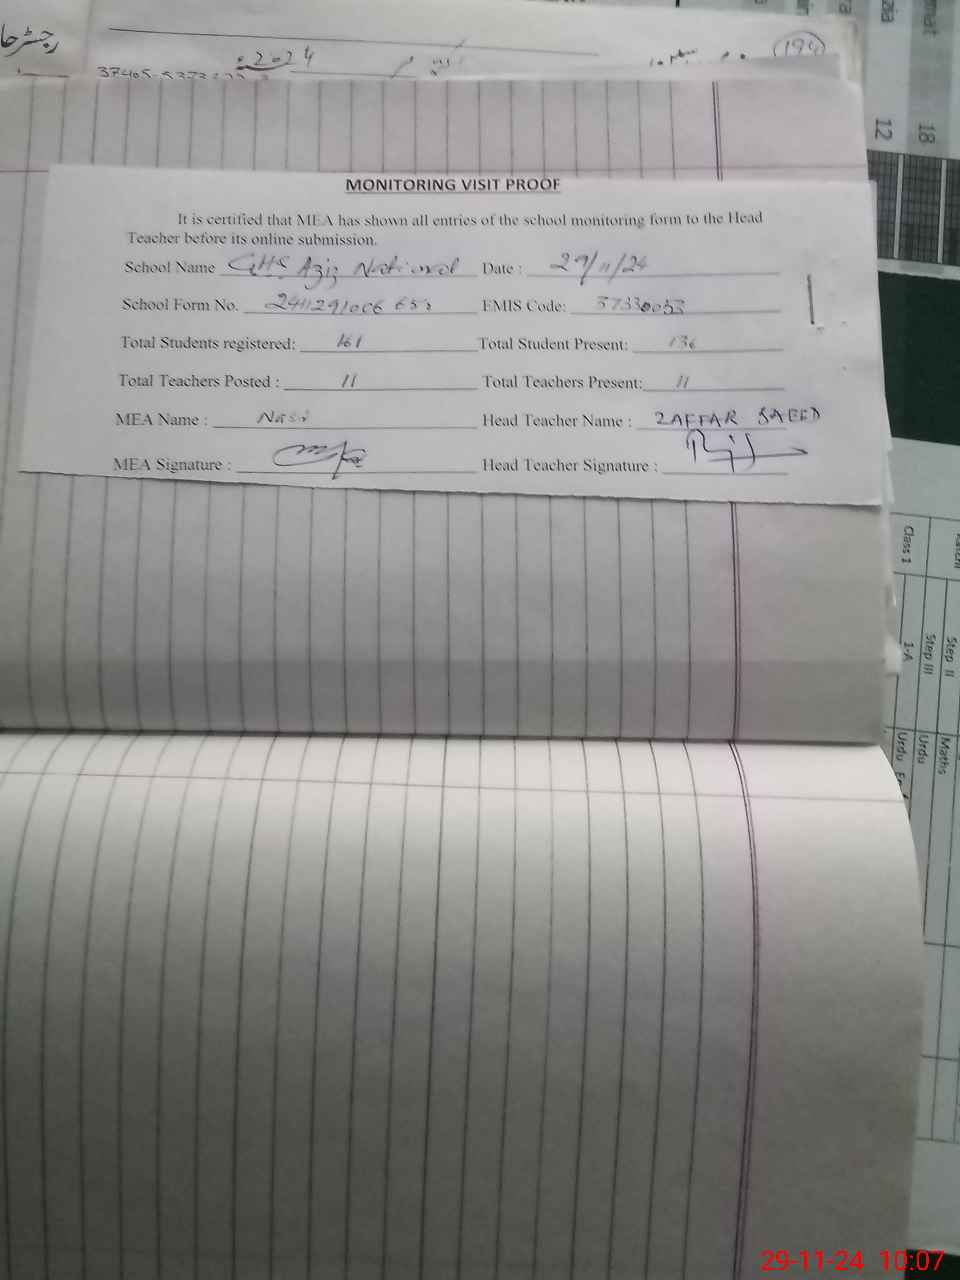 رجسٹر
2024
194
18
12
MONITORING VISIT PROOF
It is certified that MEA has shown all entries of the school monitoring form to the Head
Teacher before its online submission.
School Name GHS Aziz National Date : 29/11/24
School Form No. EMIS Code: 37330053
Total Students registered: 161 Total Student Present: 136
Total Teachers Posted : 11 Total Teachers Present: 11
MEA Name : Nasir Head Teacher Name : ZAFFAR SAEED
MEA Signature : Head Teacher Signature :
Class 1
Step II
Step III
1-A
Maths
Urdu
Urdu
29-11-24 10:07